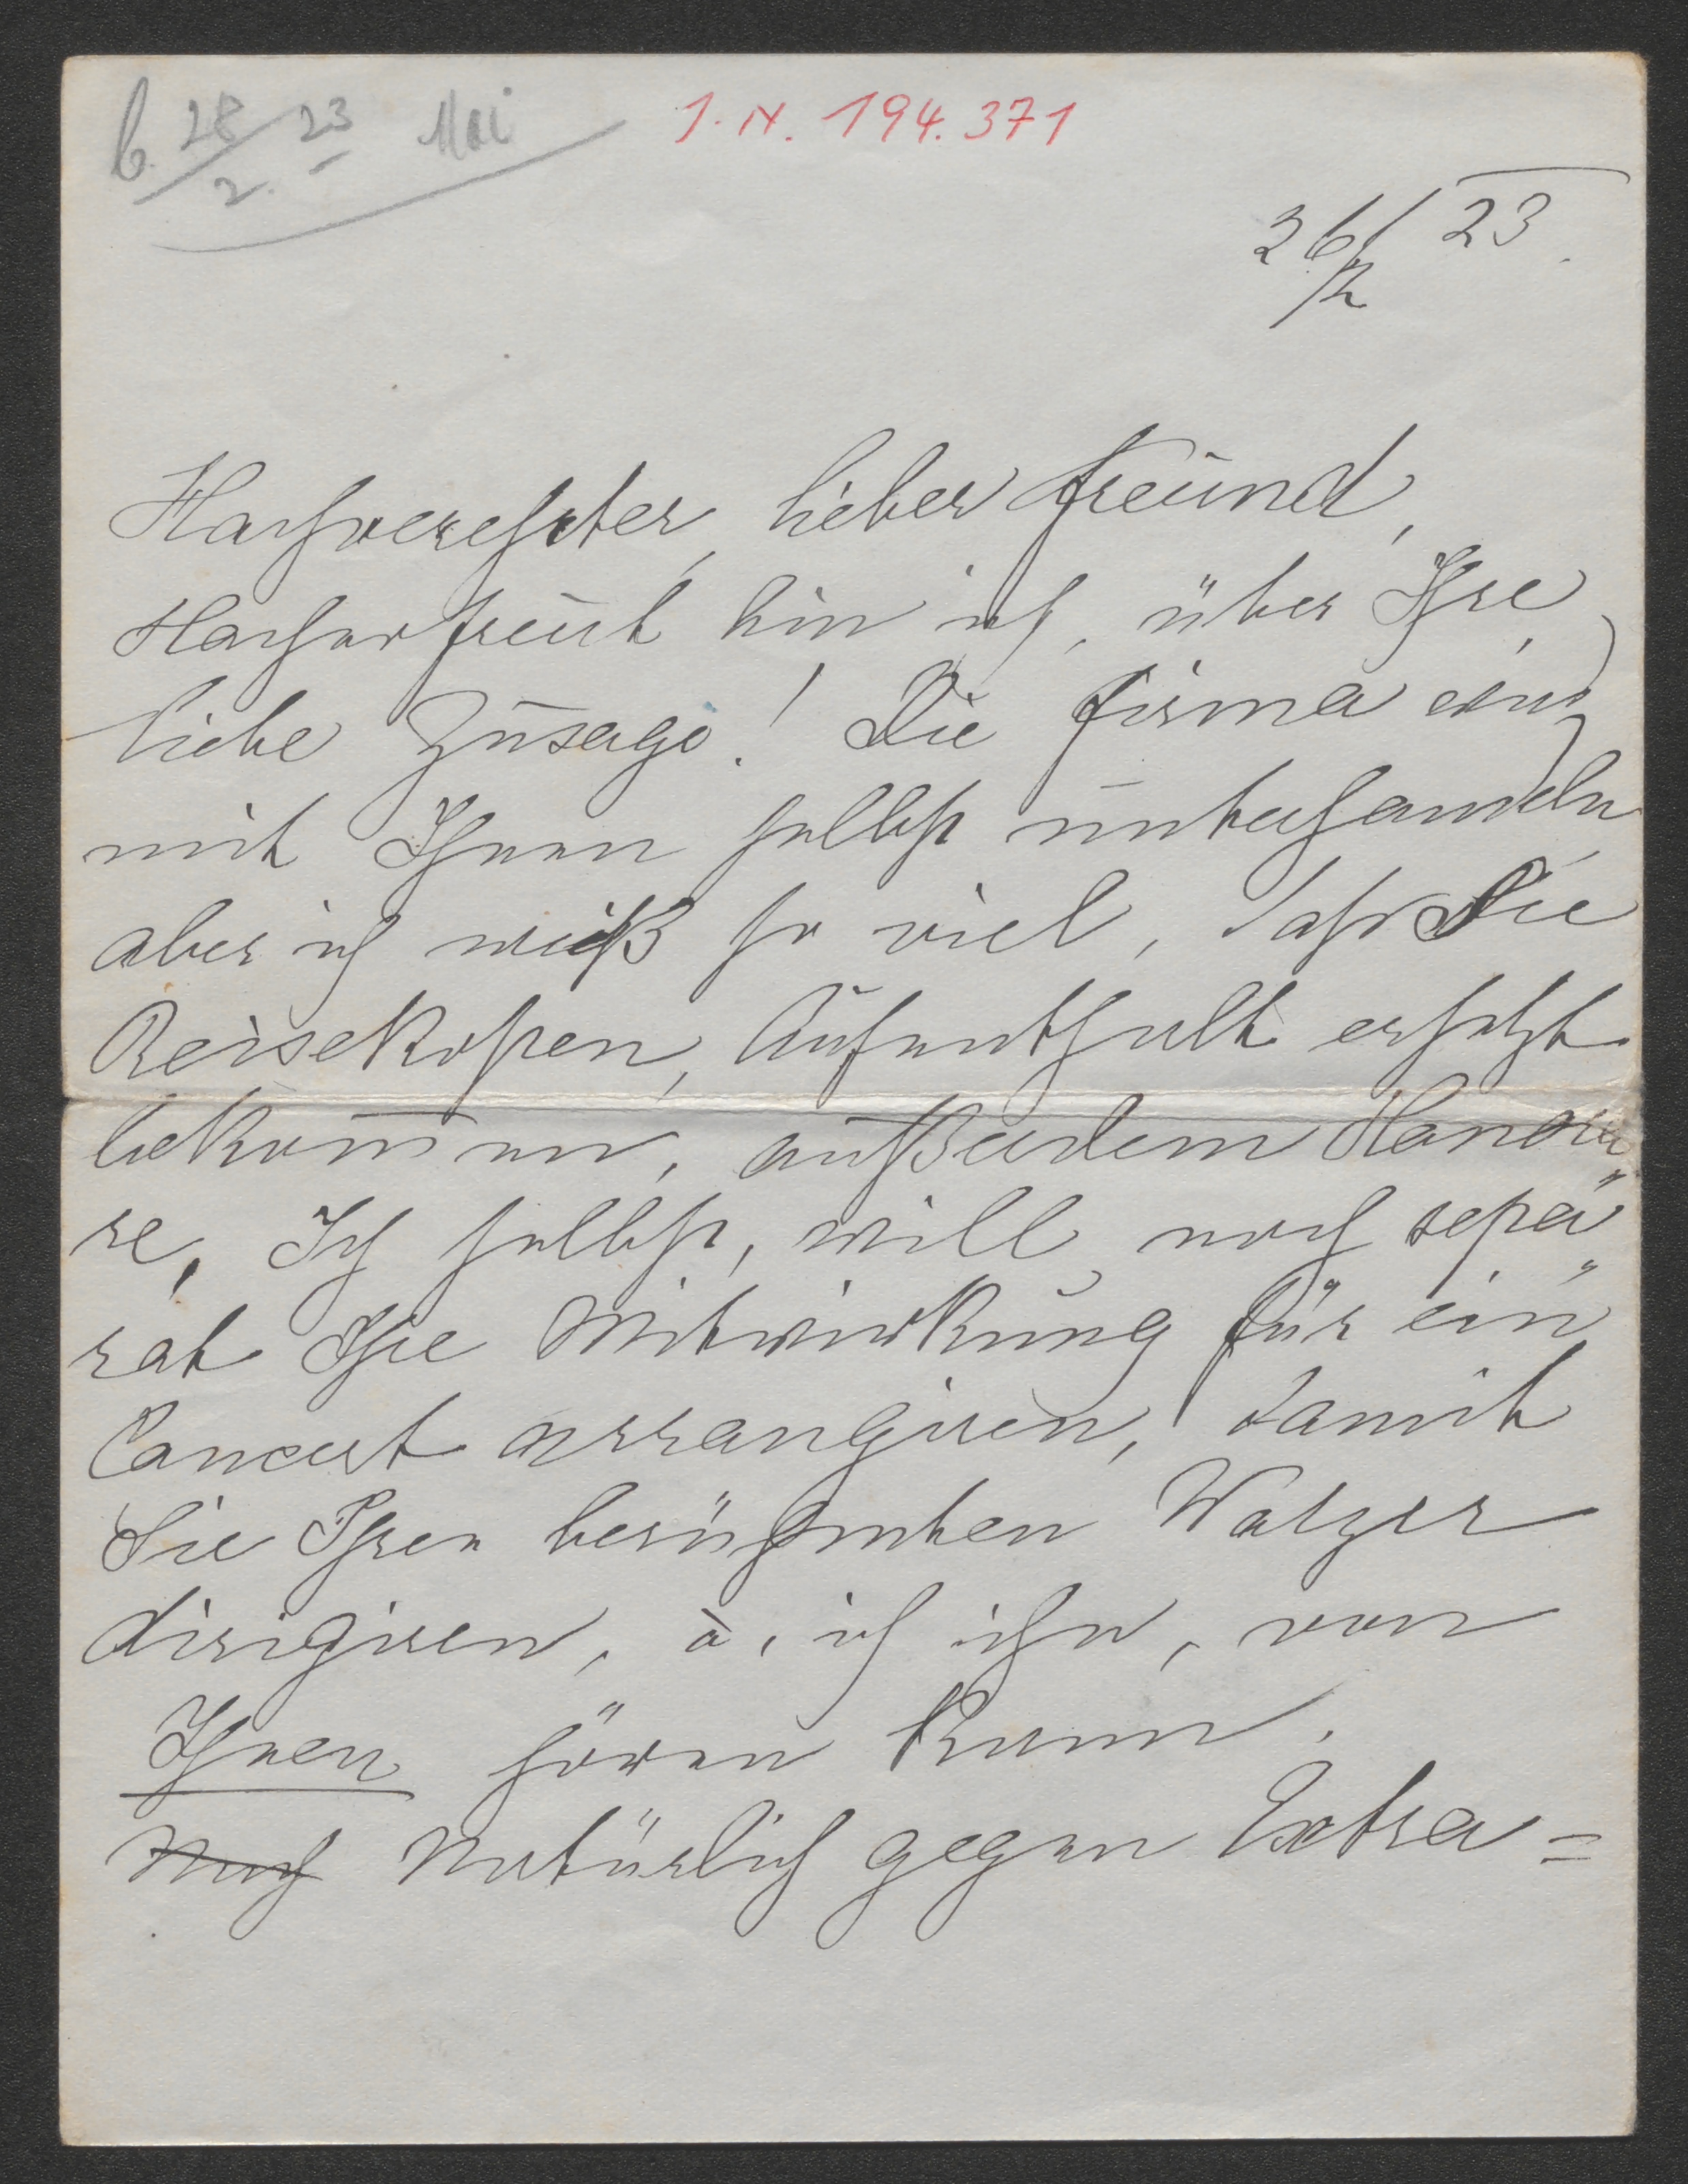 b. 28/2. 23 Mai
I.N. 194.371
26/2 23.
Hochverehrter, lieber Freund,
Hocherfreut bin ich, über Ihre
liebe Zusage! Die Firma wird
mit Ihnen selbst unterhandeln
aber ich weiß so viel, dass Sie
Reisekosten, Aufenthalt ersetzt
bekommen, außerdem Honora
re, Ich selbst, will noch sepa"
rat Ihre Mitwirkung für ein
Concert arrangiren, damit
Sie Ihren berühmten Walzer
dirigiren, u, ich ihn, von
Ihnen hören kann.
Noch Natürlich gegen Extra=